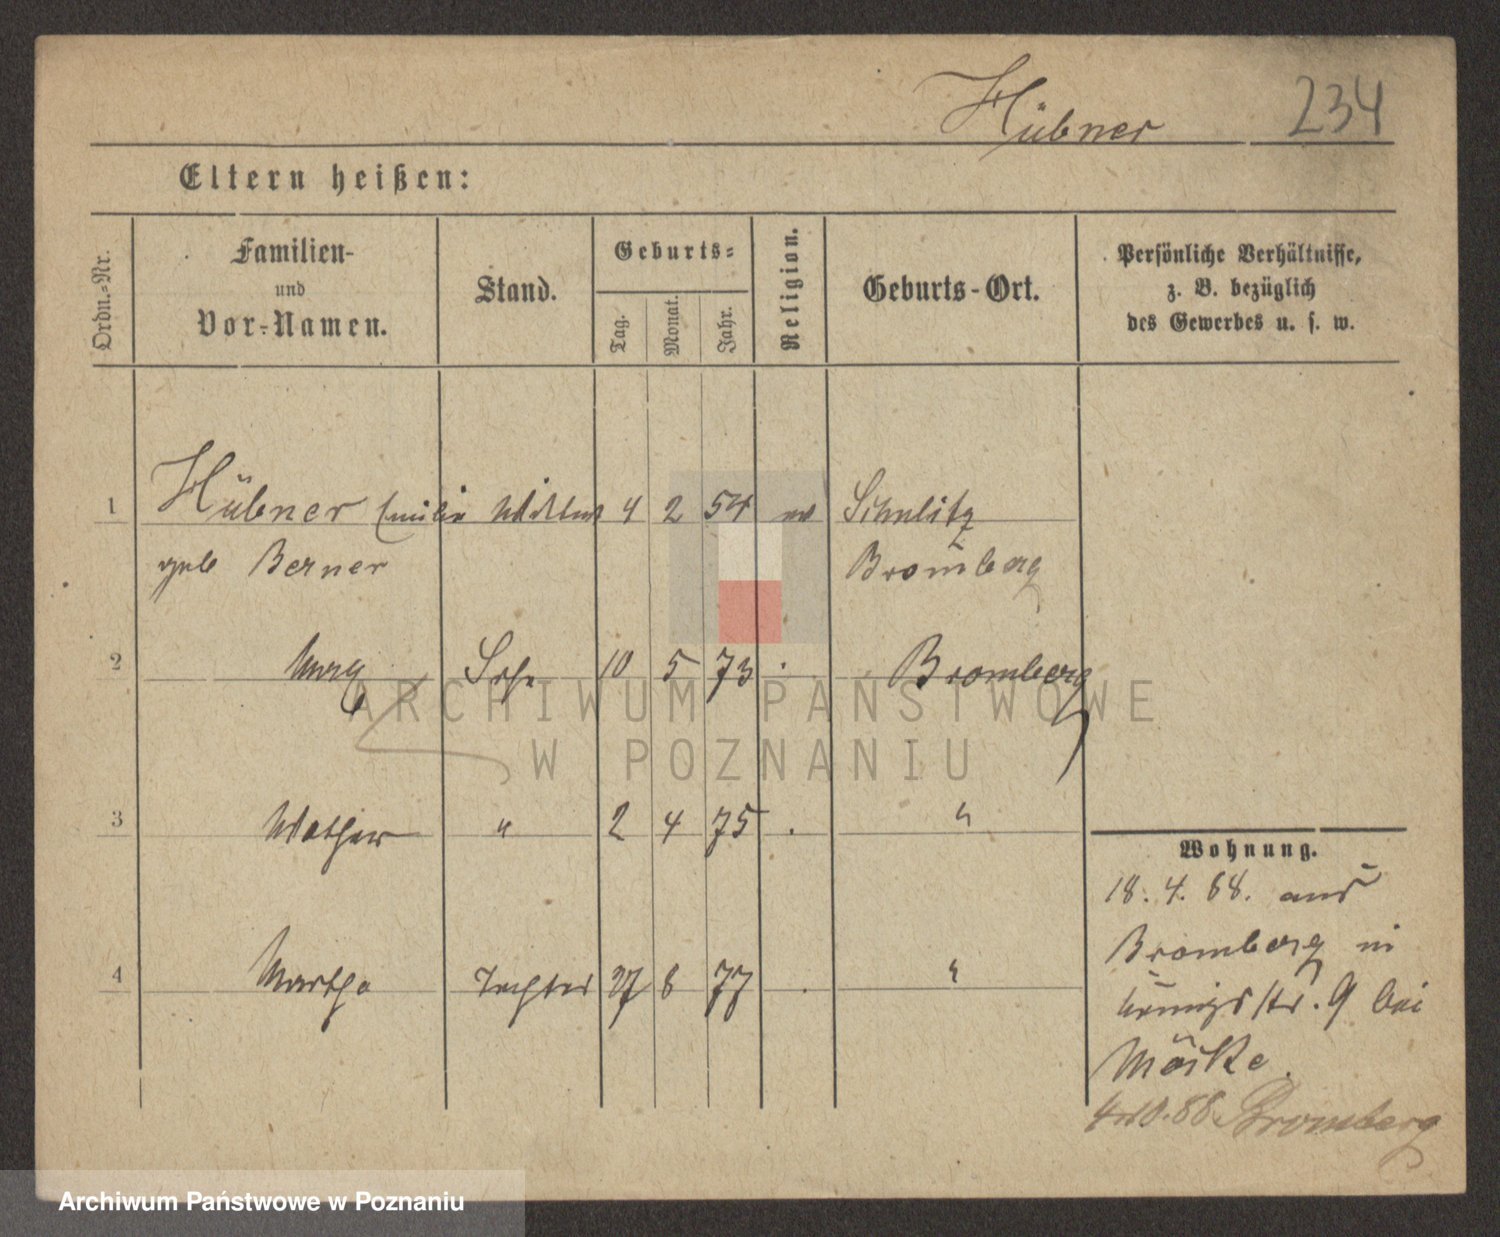 Hübner 234
Eltern heißen:
Ordn.-Nr.
Familien-
und
Vor-Namen.
Stand.
Geburts-
Tag.
Monat.
Jahr.
Religion.
Geburts-Ort.
Persönliche Verhältnisse,
z. B. bezüglich
des Gewerbes u. s. w.
1 Hübner Emilie 4 2 54 ev
geb Berner Bromberg
2 10 5 73 Bromberg
3 " 2 4 75 "
4 Martha Tochter 27 8 77 "
Wohnung.
18. 4. 88. aus
Bromberg in
Königsstr. 9 bei
88 Bromberg
ARCHIWUM PAŃSTWOWE
W POZNANIU
Archiwum Państwowe w Poznaniu